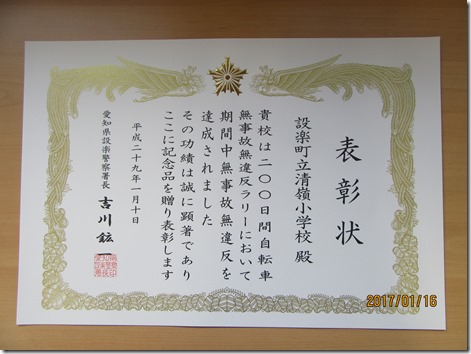 表彰状
設楽町立清嶺小学校 殿
貴校は二〇〇日間自転車
無事故無違反ラリーにおいて
期間中無事故無違反を
達成されました
その功績は誠に顕著であり
ここに記念品を贈り表彰します
平成二十九年一月十日
愛知県設楽警察署長 吉川 鉉一
2017/01/16